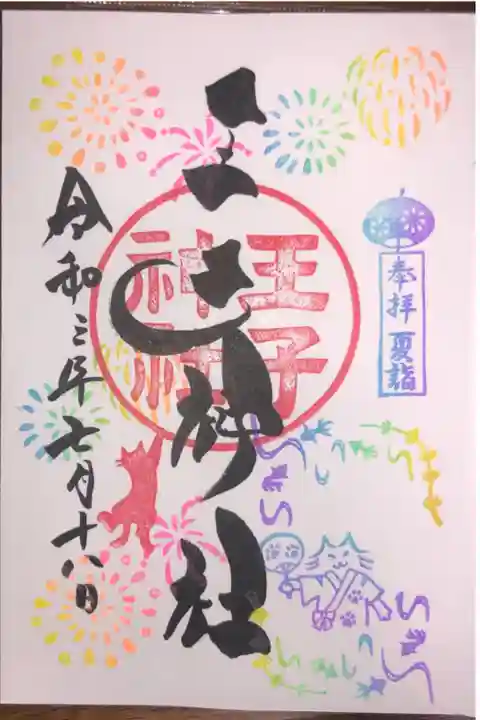 奉拝 夏詣
王子神社
王子神社
令和三年七月十八日